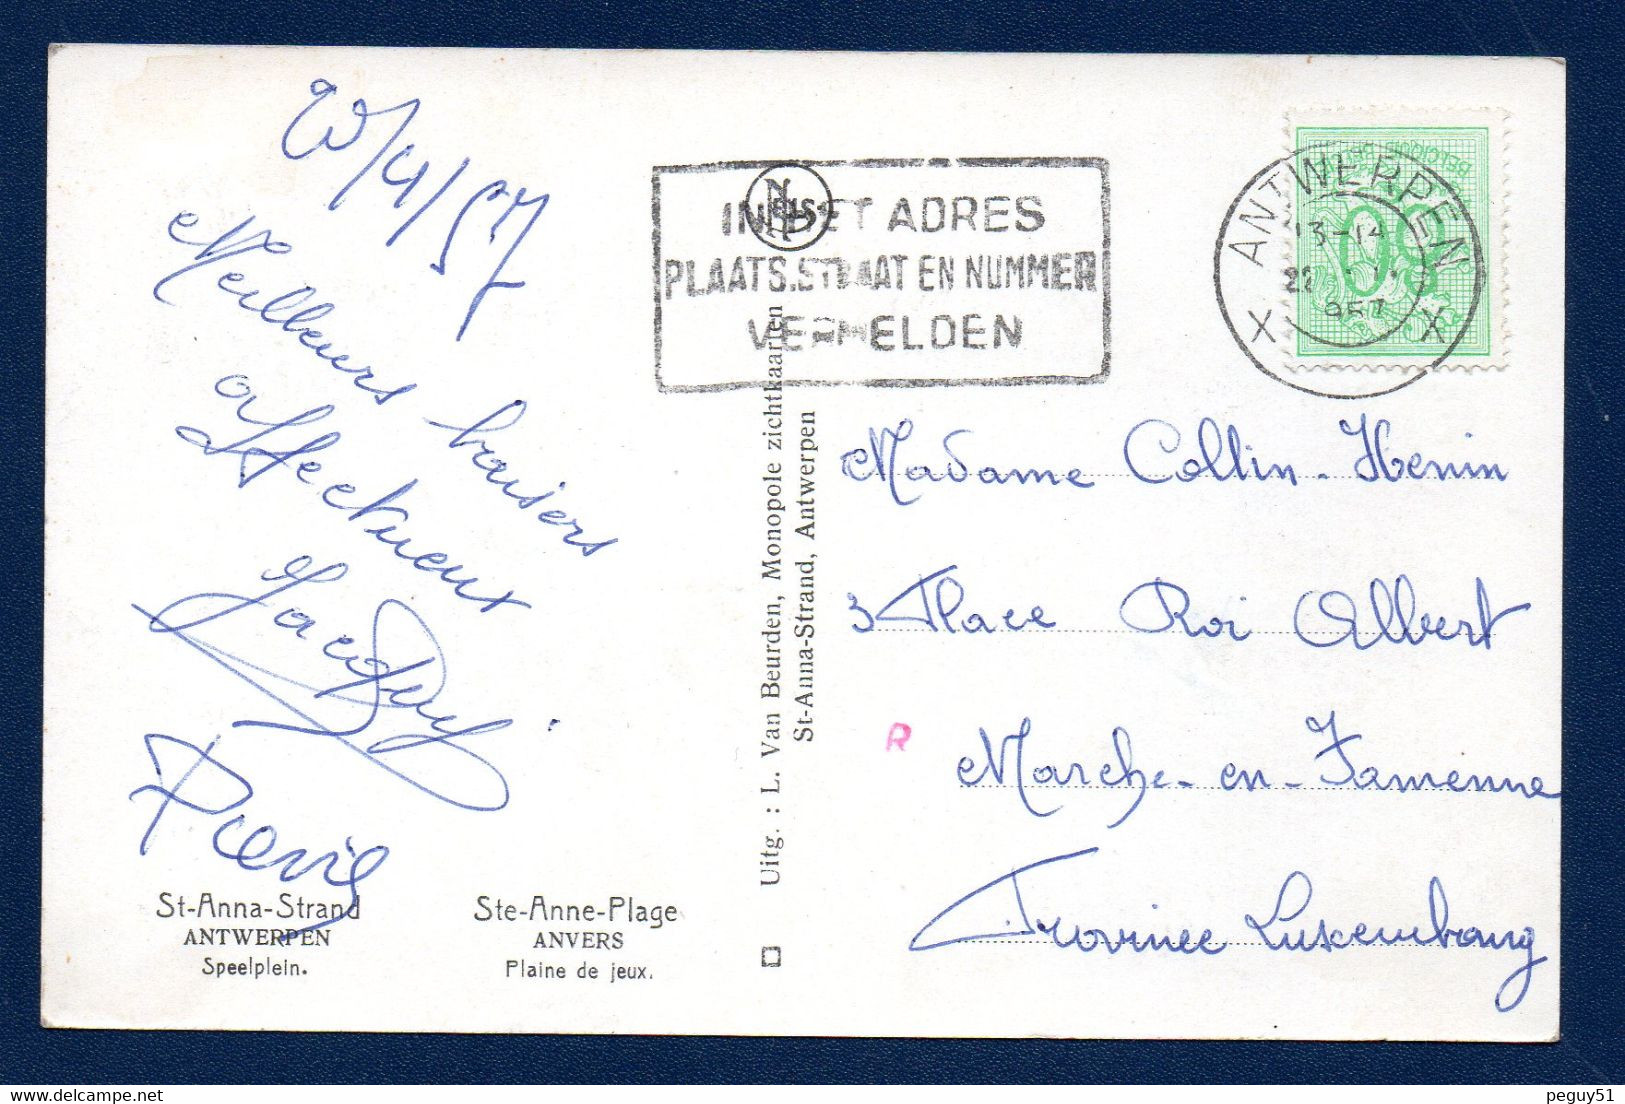 20/4/57
Meilleurs baisers
affectueux
Jacquy
Pierre
St-Anna-Strand
ANTWERPEN
Speelplein.
Ste-Anne-Plage
ANVERS
Plaine de jeux.
Uitg. : L. Van Beurden, Monopole zichtkaarten
St-Anna-Strand, Antwerpen
Nels
IN HET ADRES
PLAATS.STRAAT EN NUMMER
VERMELDEN
ANTWERPEN
13-14
X X
Madame Collin-Henin
3 Place Roi Albert
R
Marche-en-Famenne
Province Luxembourg
peguy51